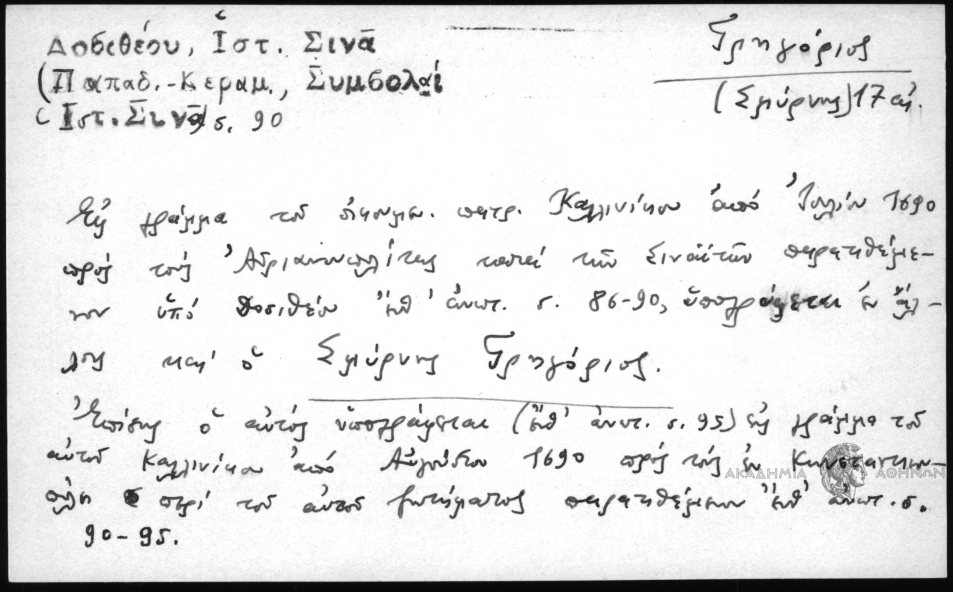 Δοσιθέου, Ἱστ. Σινᾶ
(Παπαδ.-Κεραμ., Συμβολαί
Ἱστ. Σινᾶ) σ. 90
Γρηγόριος
(Σμύρνης) 17 αἰ.
Εἰς γράμμα τοῦ οἰκουμεν. πατρ. Καλλινίκου ἀπό Ἰουλίου 1690
πρός τούς Ἀδριανουπολίτας κατά τῶν Σιναϊτῶν παρατιθέμε-
νον ὑπό Δοσιθέου ἔνθ' ἀνωτ. σ. 86-90, ὑπογράφεται ἐν ἄλ-
λοις καί ὁ Σμύρνης Γρηγόριος.
Ἐπίσης ὁ αὐτός ὑπογράφεται (ἔνθ' ἀνωτ. σ. 95) εἰς γράμμα τοῦ
αὐτοῦ Καλλινίκου ἀπό Αὐγούστου 1690 πρός τούς ἐν Κωνσταντινου-
πόλει περί τοῦ αὐτοῦ ζητήματος παρατιθέμενον ἔνθ' ἀνωτ. σ.
90-95.
ΑΚΑΔΗΜΙΑ ΑΘΗΝΩΝ